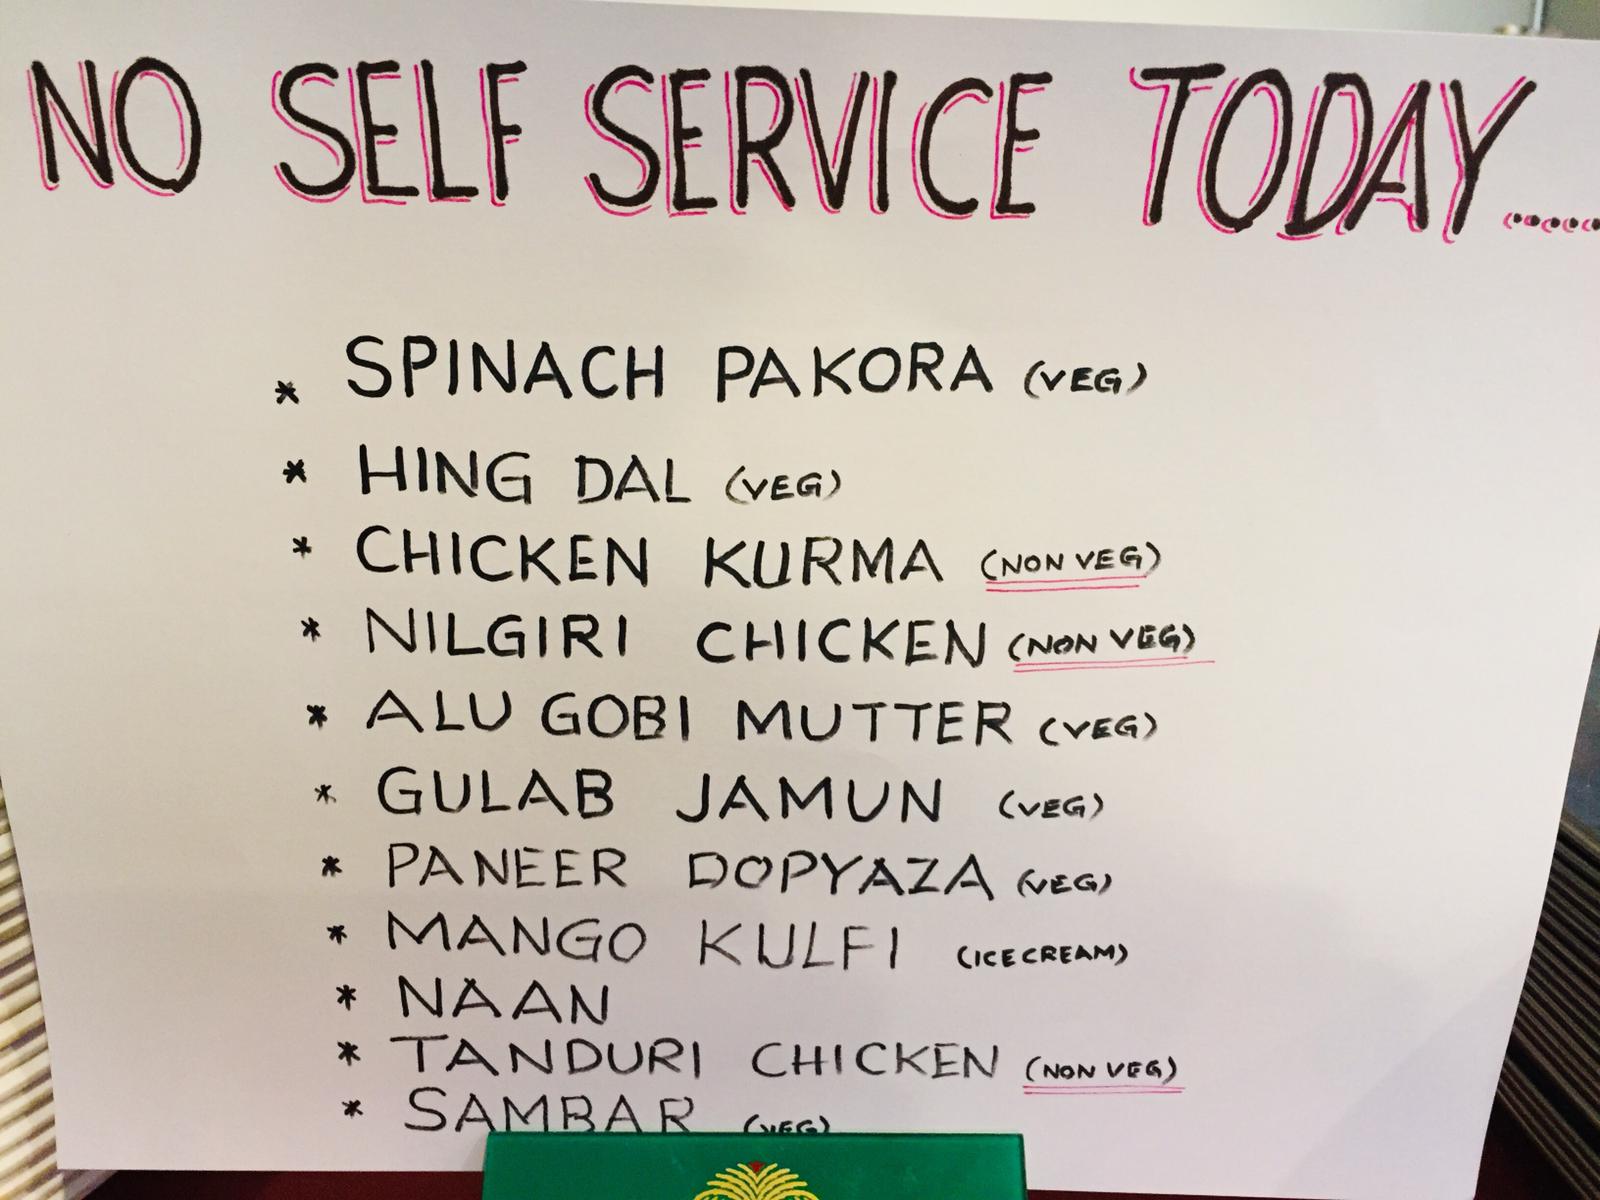 NO SELF SERVICE TODAY......
* SPINACH PAKORA (VEG)
* HING DAL (VEG)
* CHICKEN KURMA (NON VEG)
* NILGIRI CHICKEN (NON VEG)
* ALU GOBI MUTTER (VEG)
* GULAB JAMUN (VEG)
* PANEER DOPYAZA (VEG)
* MANGO KULFI (ICECREAM)
* NAAN
* TANDURI CHICKEN (NON VEG)
* SAMBAR (VEG)